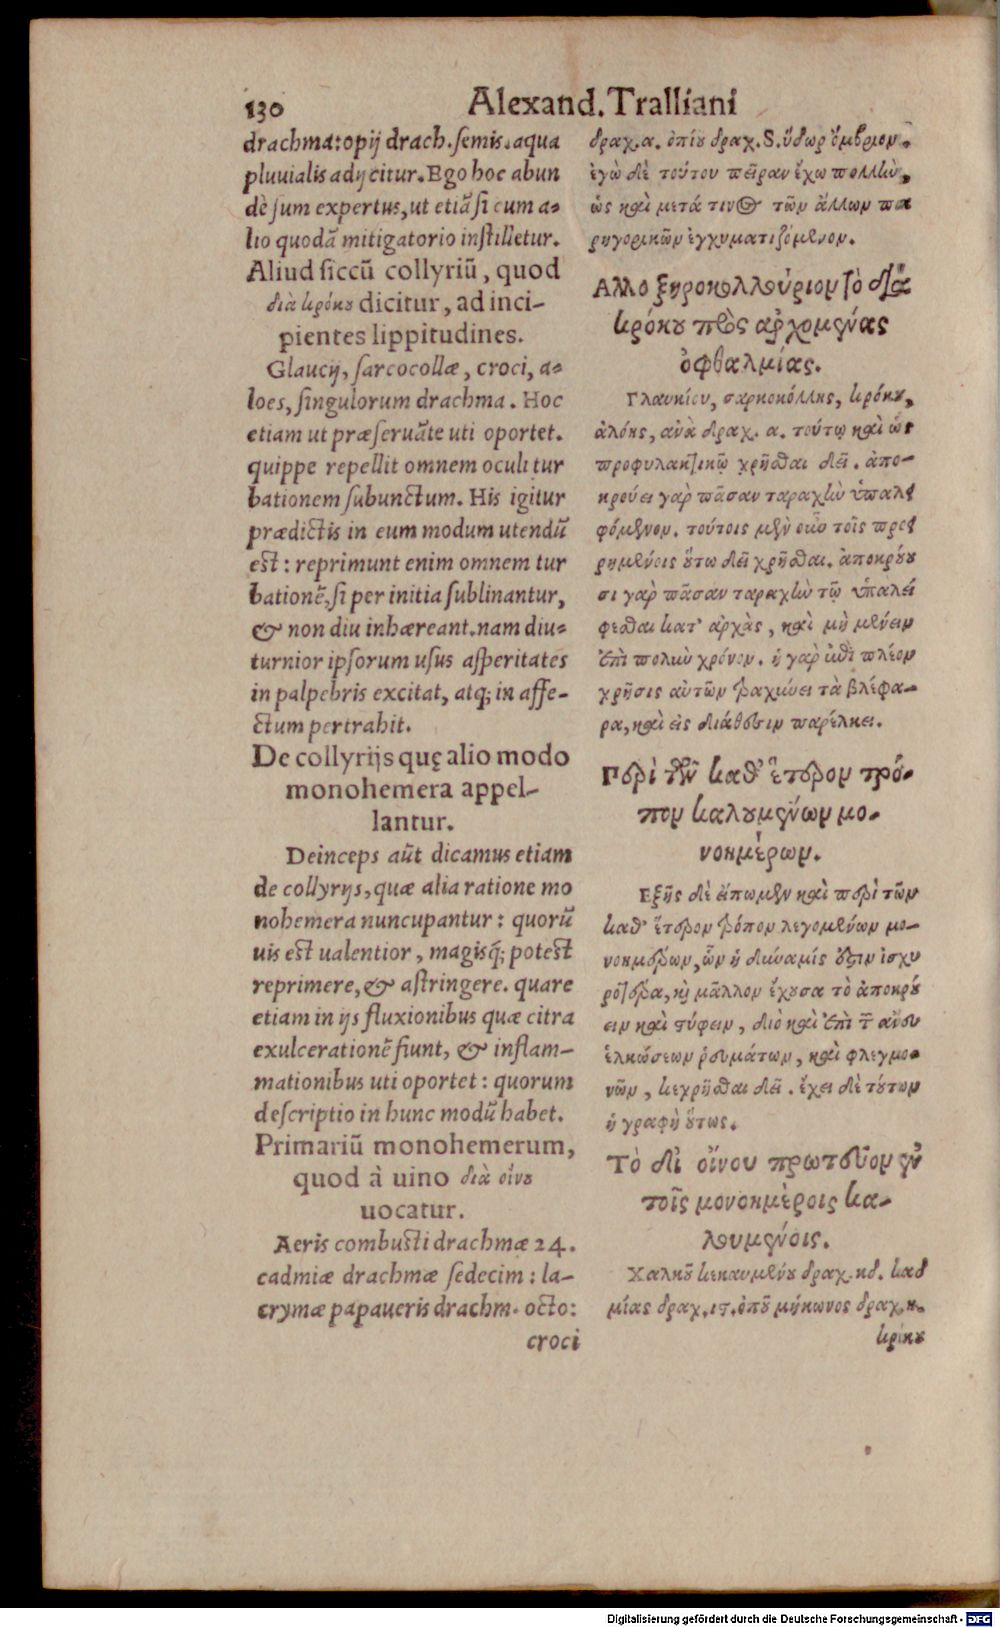 130
Alexand. Tralliani
drachma: opij drach. semis. aqua
pluuialis adijcitur. Ego hoc abun
dè sum expertus, ut etiã si cum a-
lio quodã mitigatorio instilletur.
Aliud siccũ collyriũ, quod
διὰ κρόκου dicitur, ad inci-
pientes lippitudines.
Glaucij, sarcocollæ, croci, a-
loes, singulorum drachma. Hoc
etiam ut præseruãte uti oportet.
quippe repellit omnem oculi tur
bationem subunctum. His igitur
prædictis in eum modum utendũ
est: reprimunt enim omnem tur
bationẽ, si per initia sublinantur,
& non diu inhæreant. nam diu-
turnior ipsorum usus asperitates
in palpebris excitat, atq; in affe-
ctum pertrahit.
De collyrijs quę alio modo
monohemera appel-
lantur.
Deinceps aũt dicamus etiam
de collyrijs, quæ alia ratione mo
nohemera nuncupantur: quorũ
uis est ualentior, magisq́; potest
reprimere, & astringere. quare
etiam in ijs fluxionibus quæ citra
exulcerationẽ fiunt, & inflam-
mationibus uti oportet: quorum
descriptio in hunc modũ habet.
Primariũ monohemerum,
quod à uino διὰ οἴνου
uocatur.
Aeris combusti drachmæ 24.
cadmiæ drachmæ sedecim: la-
crymæ papaueris drachm. octo:
croci
δραχ. α. ὀπίου δραχ. S. ὕδωρ ὄμβριον.
ἐγὼ δὲ τούτου πεῖραν ἔχω πολλὴν,
ὡς καὶ μετά τινος τῶν ἄλλων πα
ρηγορικῶν ἐγχυματιζόμενον.
Αλλο ξηροκολλούριον τὸ διὰ
κρόκου πρὸς ἀρχομένας
ὀφθαλμίας.
Γλαυκίου, σαρκοκόλλης, κρόκου,
ἀλόης, ἀνὰ δραχ. α. τούτῳ καὶ ὡς
προφυλακτικῷ χρῆσθαι δεῖ. ἀπο-
κρούει γὰρ πᾶσαν ταραχὴν ὑπαλει
φόμενον. τούτοις μὲν οὖν τοῖς προει
ρημένοις οὕτω δεῖ χρῆσθαι. ἀποκρού
σι γὰρ πᾶσαν ταραχὴν τῷ ὑπαλεί
φεσθαι κατ' ἀρχὰς, καὶ μὴ μένειν
ἐπὶ πολὺν χρόνον. ἡ γὰρ ἐπὶ πλέον
χρῆσις αὐτῶν τραχύνει τὰ βλέφα-
ρα, καὶ εἰς διάθεσιν παρέλκει.
Περὶ τῶν καθ' ἕτερον τρό-
πον καλουμένων μο-
νοημέρων.
Εξῆς δὲ εἴπωμεν καὶ περὶ τῶν
καθ' ἕτερον τρόπον λεγομένων μο-
νοημέρων, ὧν ἡ δύναμίς ἐστιν ἰσχυ
ροτέρα, καὶ μᾶλλον ἔχουσα τὸ ἀποκρού
ειν καὶ στύφειν, διὸ καὶ ἐπὶ τ̃ ἄνευ
ἑλκώσεων ῥευμάτων, καὶ φλεγμο-
νῶν, κεχρῆσθαι δεῖ. ἔχει δὲ τούτων
ἡ γραφὴ οὕτως.
Τὸ δι' οἴνου πρωτεῦον ἐν
τοῖς μονοημέροις κα-
λουμένοις.
Χαλκοῦ κεκαυμένου δραχ. κδ. καδ
μίας δραχ. ιϛ. ὀποῦ μήκωνος δραχ. η.
κρόκου
Digitalisierung gefördert durch die Deutsche Forschungsgemeinschaft - DFG